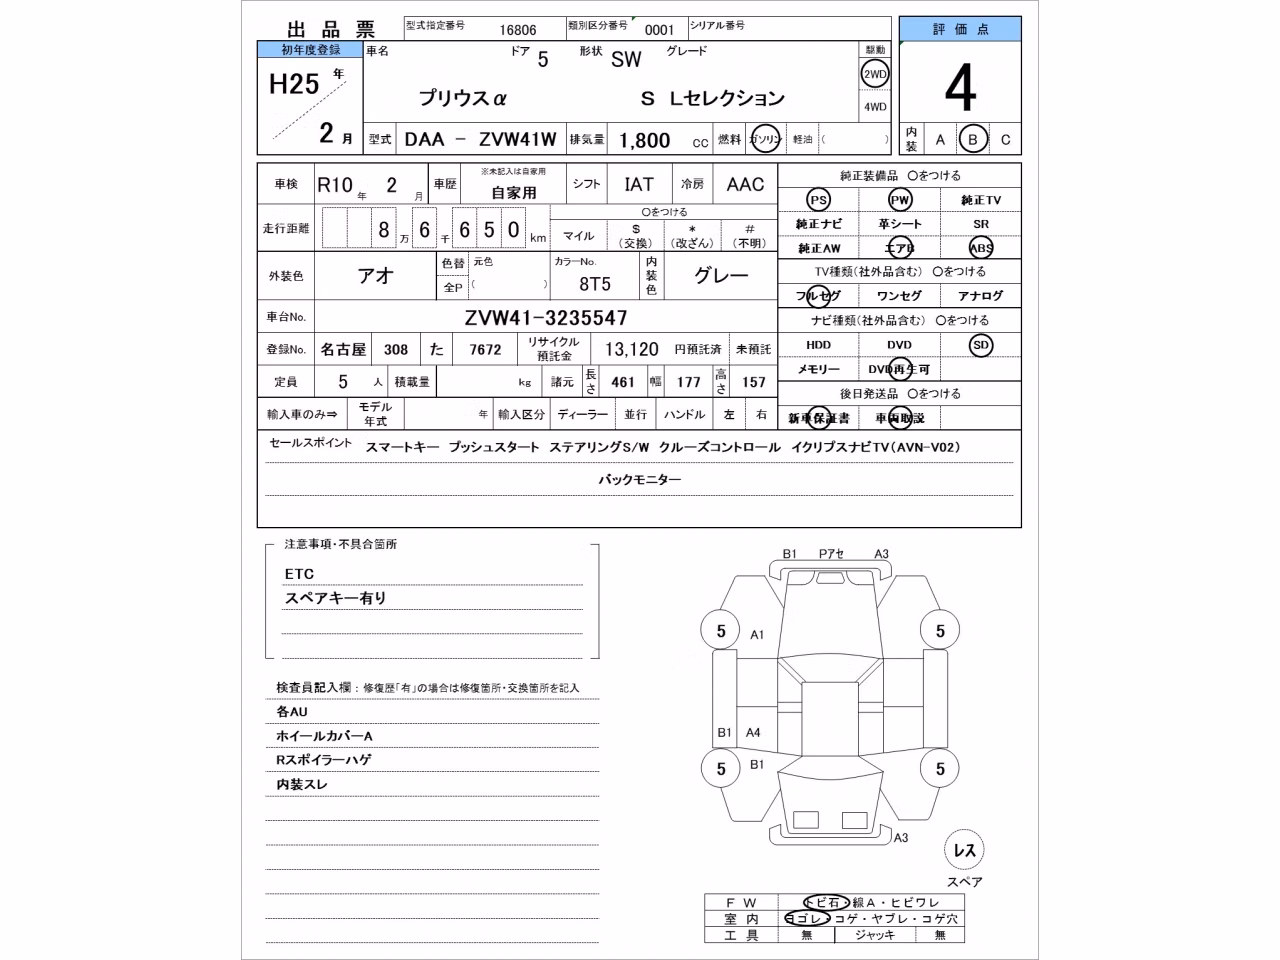 出品票
型式指定番号 16806 類別区分番号 0001 シリアル番号
評価点
初年度登録
H25年
2月
車名 ドア 5 形状 SW グレード
プリウスα S Lセレクション
駆動
2WD
4WD
4
型式 DAA － ZVW41W 排気量 1,800 CC 燃料 ガソリン 軽油 ( )
内装 A B C
車検 R10年 2月 車歴 ※未記入は自家用 自家用 シフト IAT 冷房 AAC
走行距離 8万6千650km 〇をつける
マイル $(交換) *(改ざん) #(不明)
外装色 アオ 色替 元色 全P ( ) カラーNo. 8T5 内装色 グレー
車台No. ZVW41-3235547
登録No. 名古屋 308 た 7672 リサイクル預託金 13,120 円預託済 未預託
定員 5人 積載量 kg 諸元 長さ 461 幅 177 高さ 157
輸入車のみ⇒ モデル年式 年 輸入区分 ディーラー 並行 ハンドル 左 右
純正装備品 〇をつける
PS PW 純正TV
純正ナビ 革シート SR
純正AW エアB ABS
TV種類(社外品含む) 〇をつける
フルセグ ワンセグ アナログ
ナビ種類(社外品含む) 〇をつける
HDD DVD SD
メモリー DVD再生可
後日発送品 〇をつける
新車保証書 車両取説
セールスポイント スマートキー プッシュスタート ステアリングS/W クルーズコントロール イクリプスナビTV(AVN-V02)
バックモニター
注意事項・不具合箇所
ETC
スペアキー有り
検査員記入欄：修復歴「有」の場合は修復箇所・交換箇所を記入
各AU
ホイールカバーA
Rスポイラーハゲ
内装スレ
B1 Pアセ A3
5 A1 5
B1 A4
5 B1 5
A3
レス
スペア
FW トビ石・線A・ヒビワレ
室内 ヨゴレ・コゲ・ヤブレ・コゲ穴
工具 無 ジャッキ 無